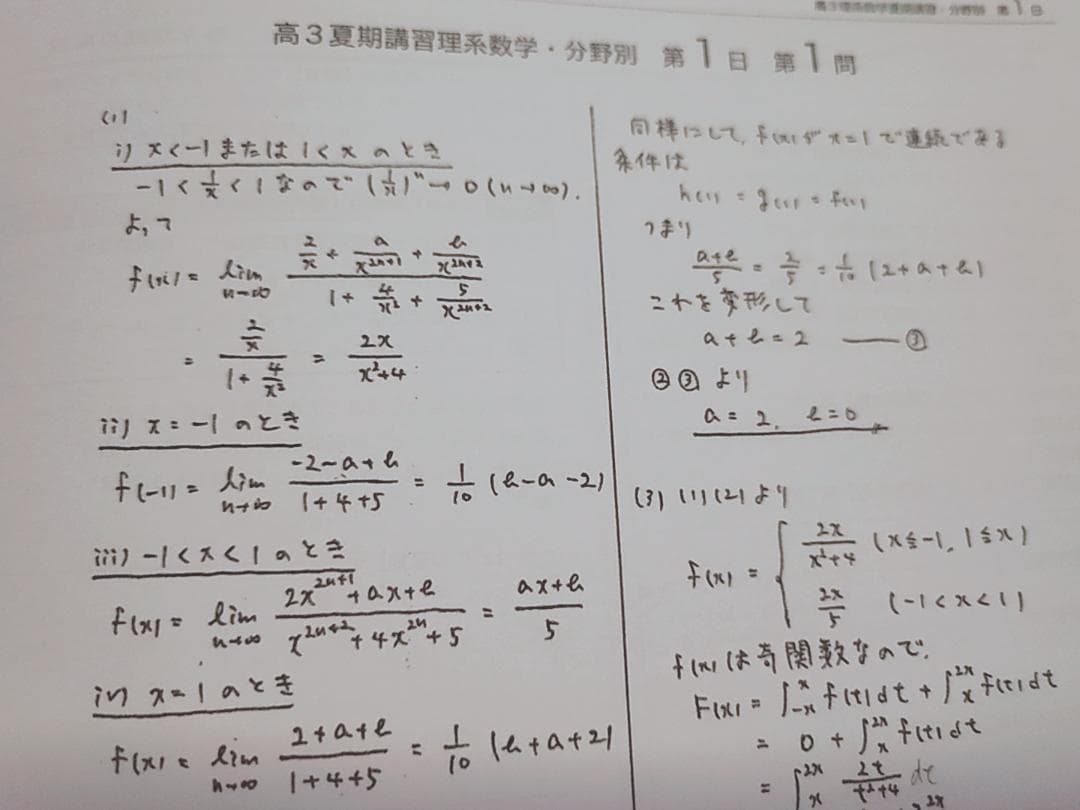 高3理系数学夏期講習・分野別 第1日
高3夏期講習理系数学・分野別 第1日 第1問
(1)
i) x<-1 または 1<x のとき
-1 < 1/x < 1 なので (1/x)^n → 0 (n→∞).
よって
f(x) = lim_{n→∞} (2/x + a/x^{2n+1} + b/x^{2n+2}) / (1 + 4/x^2 + 5/x^{2n+2})
= (2/x) / (1 + 4/x^2) = 2x/(x^2+4)
ii) x = -1 のとき
f(-1) = lim_{n→∞} (-2-a+b)/(1+4+5) = 1/10 (b-a-2)
iii) -1<x<1 のとき
f(x) = lim_{n→∞} (2x^{2n+1}+ax+b)/(x^{2n+2}+4x^{2n}+5) = (ax+b)/5
iv) x=1 のとき
f(x) = lim_{n→∞} (2+a+b)/(1+4+5) = 1/10 (b+a+2)
同様にして, f(x)が x=1 で連続である
条件は
h(1) = g(1) = f(1)
つまり
(a+b)/5 = 2/5 = 1/10 (2+a+b)
これを変形して
a+b=2 ―― ③
②③ より
a = 2, b=0
(3) (1)(2) より
f(x) = { 2x/(x^2+4) (x≦-1, 1≦x)
2x/5 (-1<x<1)
f(x) は奇関数なので,
F(x) = ∫_{-x}^{x} f(t)dt + ∫_{x}^{2x} f(t)dt
= 0 + ∫_{x}^{2x} f(t)dt
= ∫_{x}^{2x} 2t/(t^2+4) dt
2x